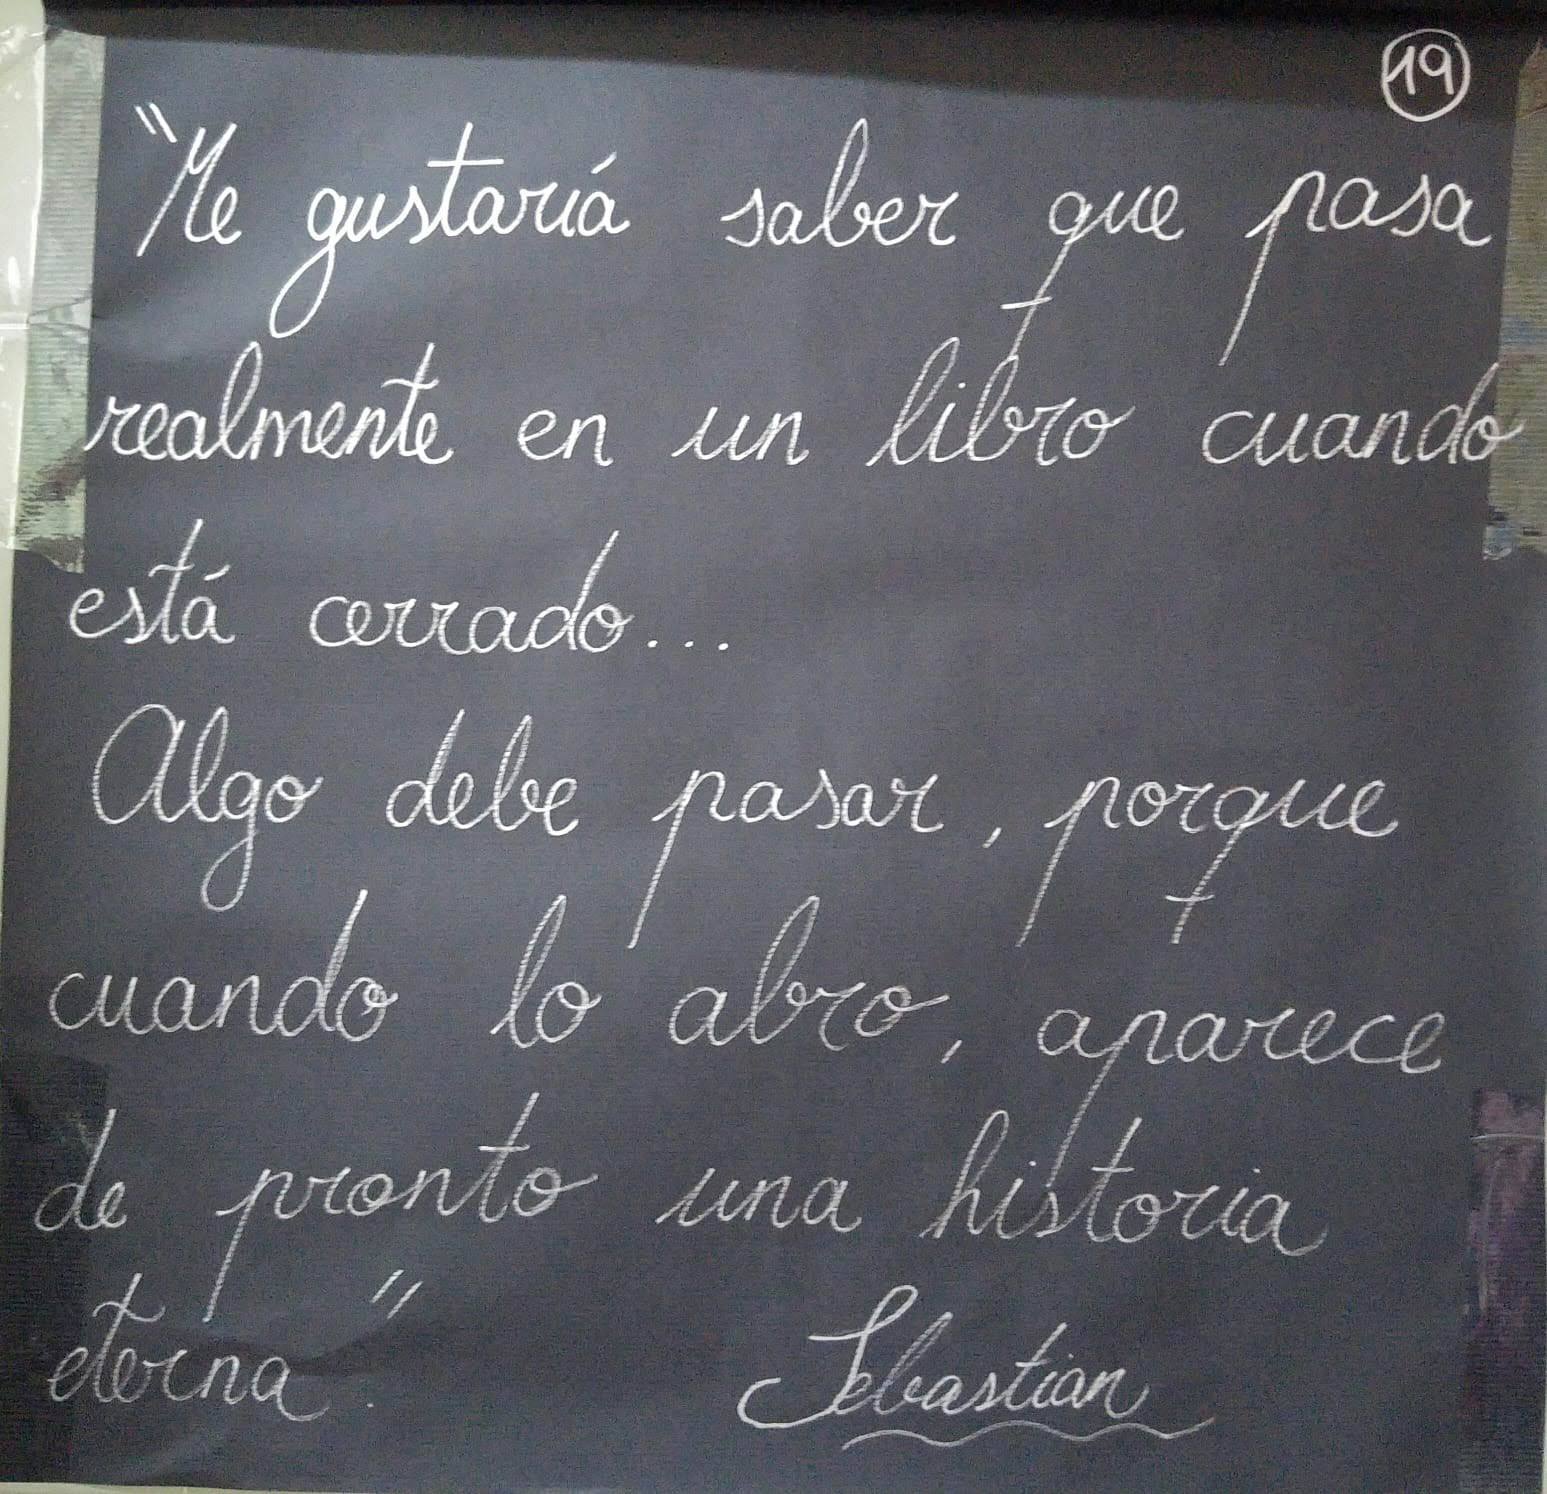 19
"Me gustaría saber que pasa
realmente en un libro cuando
está cerrado...
Algo debe pasar, porque
cuando lo abro, aparece
de pronto una historia
eterna."
Sebastian